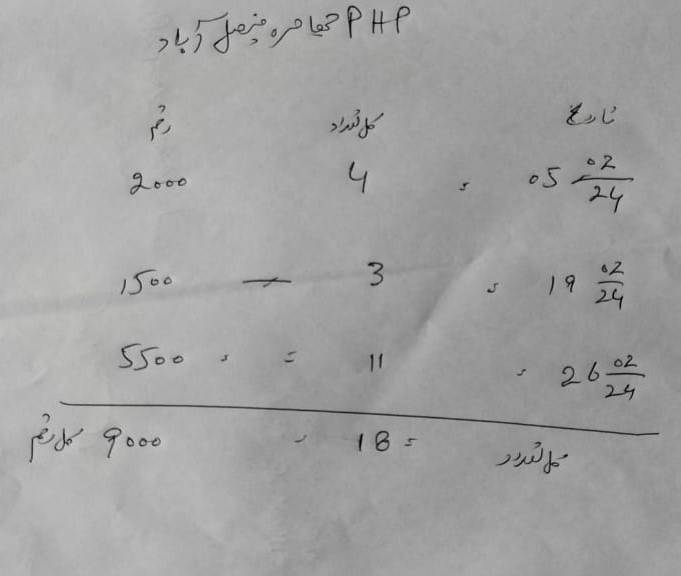 PHP فیصل آباد
تاریخ کل تعداد رقم
05 02/24 = 4 2000
19 02/24 = 3 — 1500
26 02/24 = 11 = = 5500
کل تعداد = 18 = 9000 کل رقم